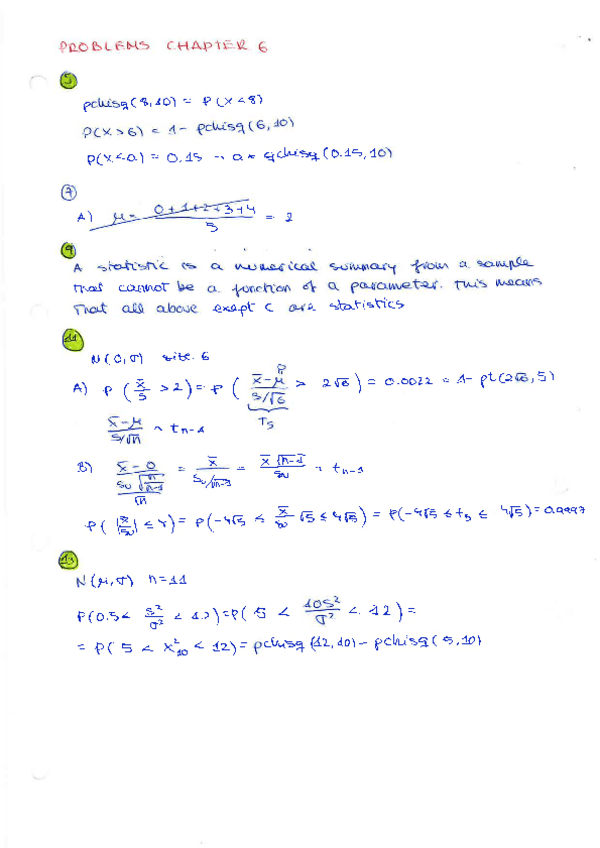 PROBLEMS CHAPTER 6
5
pchisq(8,10) = P(X<8)
P(X>6) = 1- pchisq(6,10)
P(X<a) = 0.15 → a = qchisq(0.15,10)
7
A) μ = (0+1+2+3+4)/5 = 2
9
A statistic is a numerical summary from a sample
that cannot be a function of a parameter. This means
that all above exept C are statistics
11
N(0,σ) size. 6
A) P(x̄/s >2) = P((x̄-μ)/(s/√6) > 2√6) = 0.0022 = 1- pt(2√6,5)
0
T5
(x̄-μ)/(s/√n) ~ tn-1
B) (x̄-0)/((sn √(n/(n-1)))/√n) = x̄/(sn/√n-1) = (x̄ √n-1)/sn ~ tn-1
P(|x̄/sn| ≤ 4) = P(-4√5 ≤ x̄/sn √5 ≤ 4√5) = P(-4√5 ≤ t5 ≤ 4√5) = 0.9997
13
N(μ,σ) n=11
P(0.5 < s²/σ² < 1.2) = P(5 < 10s²/σ² < 12) =
= P(5 < X²10 < 12) = pchisq(12,10) - pchisq(5,10)